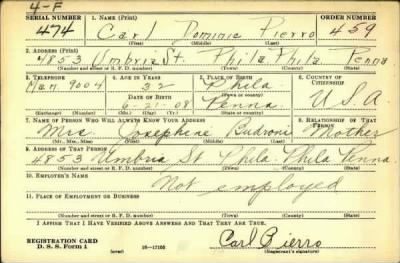 4-F
SERIAL NUMBER 1. NAME (Print) ORDER NUMBER
474 Carl Dominic Pierro 459
(First) (Middle) (Last)
2. ADDRESS (Print)
4853 Umbria St. Phila. Phila Penna
(Number and street or R. F. D. number) (Town) (County) (State)
3. TELEPHONE 4. AGE IN YEARS 5. PLACE OF BIRTH 6. COUNTRY OF CITIZENSHIP
Man. 9004 32 Phila
DATE OF BIRTH (Town or county)
6-21-08 Penna. U.S.A.
(Exchange) (Number) (Mo.) (Day) (Yr.) (State or country)
7. NAME OF PERSON WHO WILL ALWAYS KNOW YOUR ADDRESS 8. RELATIONSHIP OF THAT PERSON
Mrs. Josephine Budroni Mother
(Mr., Mrs., Miss) (First) (Middle) (Last)
9. ADDRESS OF THAT PERSON
4853 Umbria St Phila. Phila Penna.
(Number and street or R. F. D. number) (Town) (County) (State)
10. EMPLOYER'S NAME
Not employed
11. PLACE OF EMPLOYMENT OR BUSINESS
(Number and street or R. F. D. number) (Town) (County) (State)
I AFFIRM THAT I HAVE VERIFIED ABOVE ANSWERS AND THAT THEY ARE TRUE.
REGISTRATION CARD
D. S. S. Form 1 (over) 16-17105 Carl Pierro
(Registrant's signature)